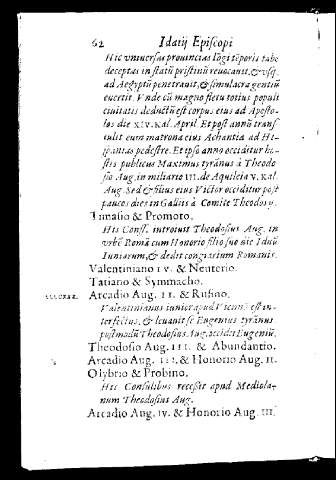 62 Idatij Episcopi
Hic vniuersas prouincias lōgi tēporis tabe
deceptas in statū pristinū reuocauit, & vsq;
ad Aegyptū penetrauit, & simulacra gentiū
euertit. Vnde cū magno fletu totius populi
ciuitatis deductū est corpus eius ad Aposto-
los die XIV. kal. April. Et post annū trans-
tulit eum matrona eius Achantia ad His-
panias pedestre. Et ipso anno occiditur ho-
stis publicus Maximus tyrānus à Theodo
sio Aug. in miliario III. de Aquileia V. kal.
Aug. Sed & filius eius Victor occiditur post
paucos dies in Galliis à Comite Theodosij.
Timasio & Promoto.
His Cons̄. introiuit Theodosius Aug. in
vrbē Romā cum Honorio filio suo die Iduū
Iuniarum, & dedit congiarium Romanis.
Valentiniano IV. & Neuterio.
Tatiano & Symmacho.
Arcadio Aug. II. & Rufino.
Valentinianus iunior apud Viennā est in-
terfectus, & leuauit se Eugenius tyrānus
postmodū Theodosius Aug. occidit Eugeniū.
Theodosio Aug. III. & Abundantio.
Arcadio Aug. III. & Honorio Aug. II.
Olybrio & Probino.
His Consulibus recessit apud Mediola-
num Theodosius Aug.
Arcadio Aug. IV. & Honorio Aug. III.